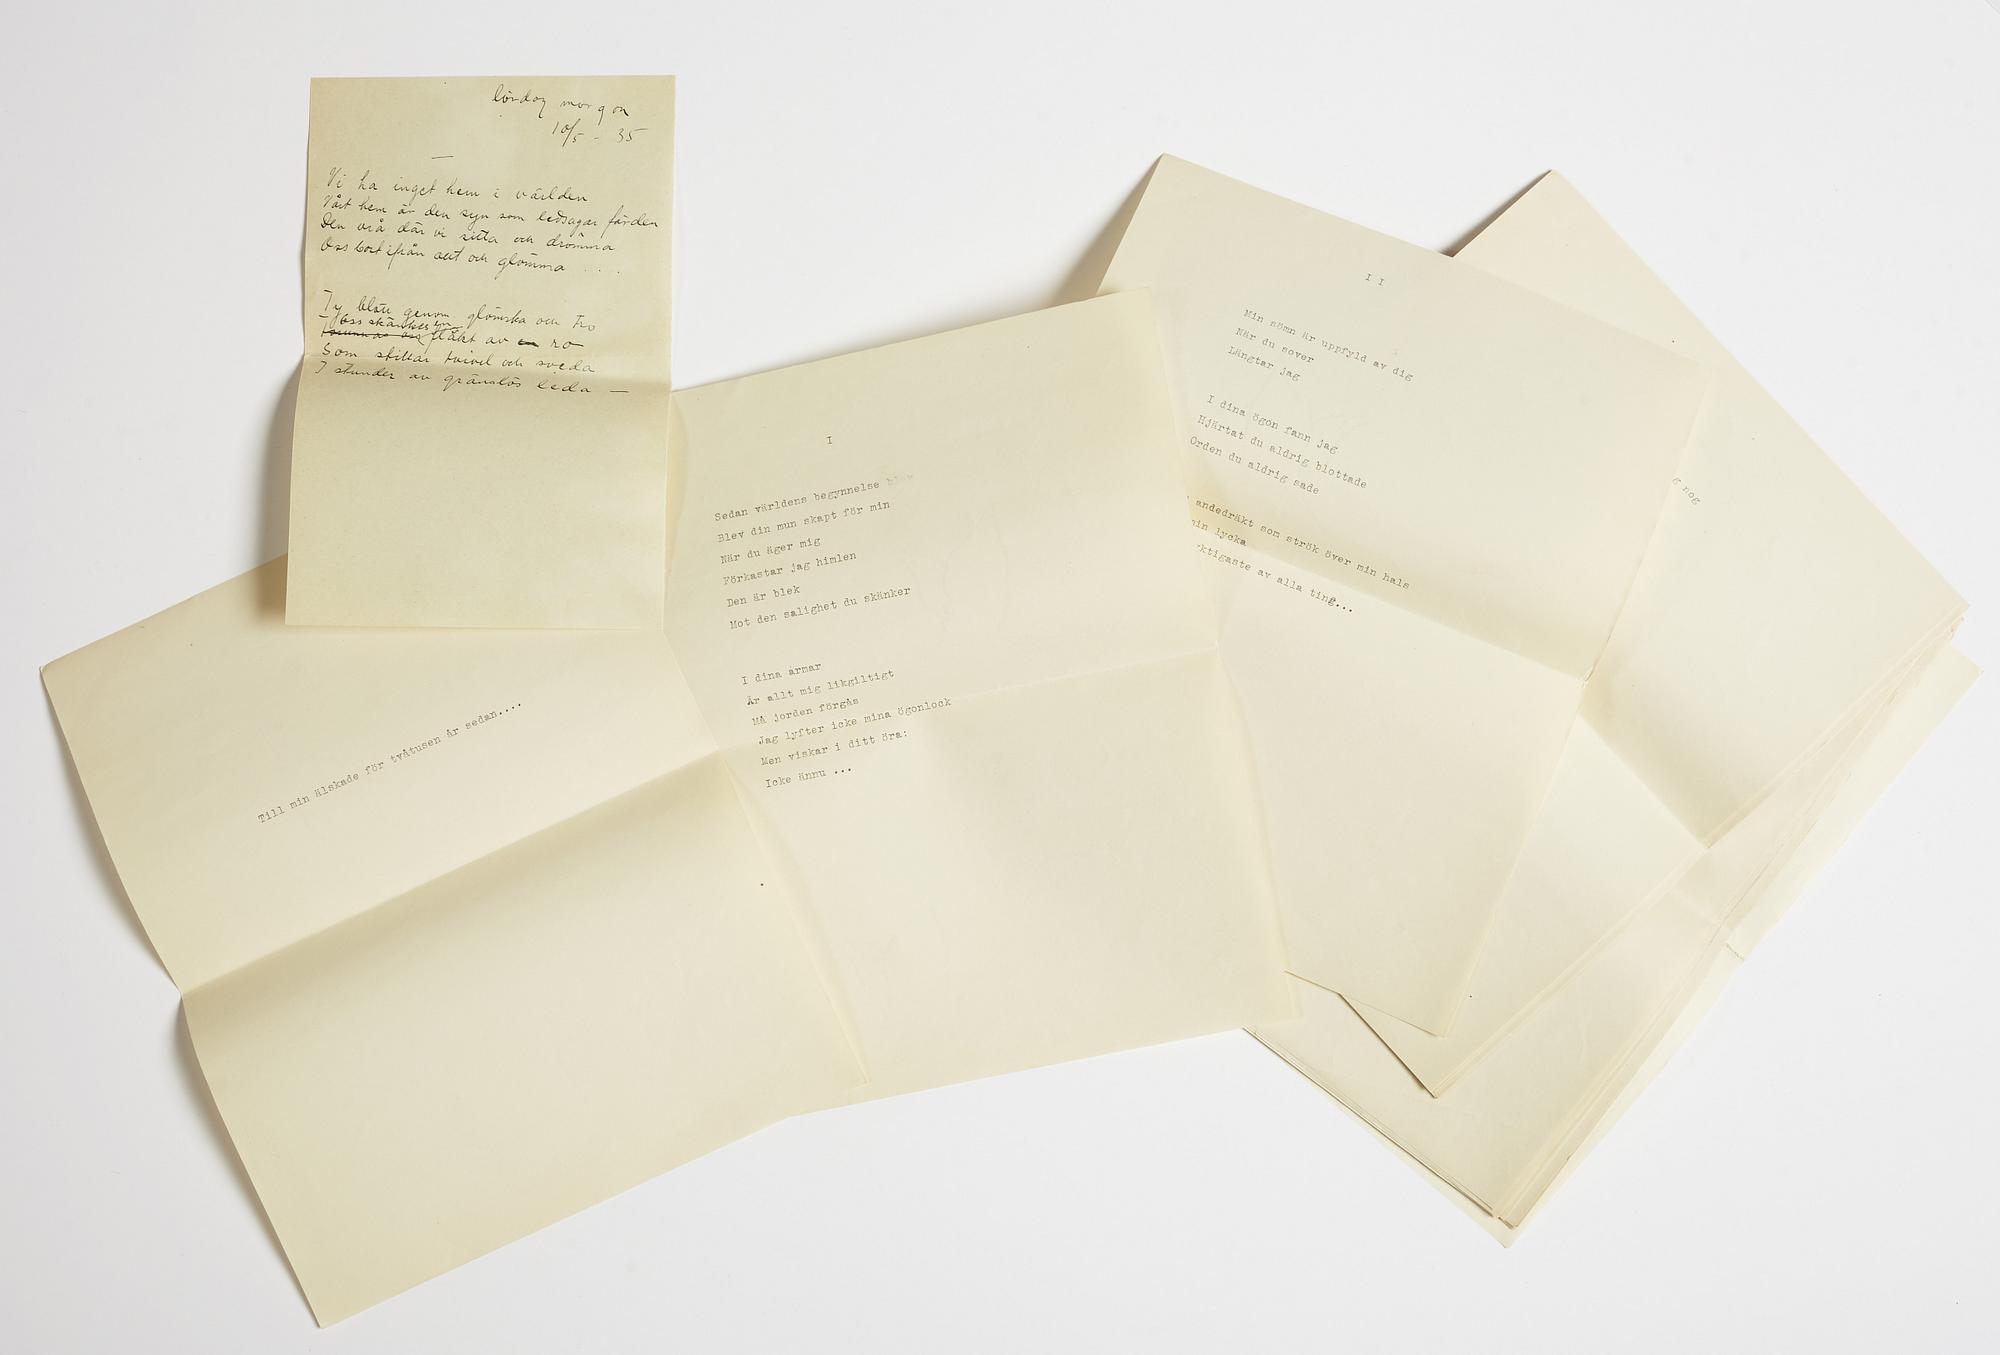 lördag morgon
10/5 - 35
Vi ha inget hem i världen
Vårt hem är den syn som ledsagar färden
Den vrå där vi sitta och drömma
Oss bort ifrån allt och glömma . . .
Ty blott genom glömska och tro
oss skänkes en
fläkt av ro
Som stillar tvivel och sveda
I stunder av gränslös leda —
Till min älskade för tvåtusen år sedan....
I
Sedan världens begynnelse blev
Blev din mun skapt för min
När du äger mig
Förkastar jag himlen
Den är blek
Mot den salighet du skänker
I dina armar
Är allt mig likgiltigt
Må jorden förgås
Jag lyfter icke mina ögonlock
Men viskar i ditt öra:
Icke ännu ...
I I
Min sömn är uppfyld av dig
När du sover
Längtar jag
I dina ögon fann jag
Hjärtat du aldrig blottade
Orden du aldrig sade
andedräkt som strök över min hals
min lycka
ktigaste av alla ting...
g nog